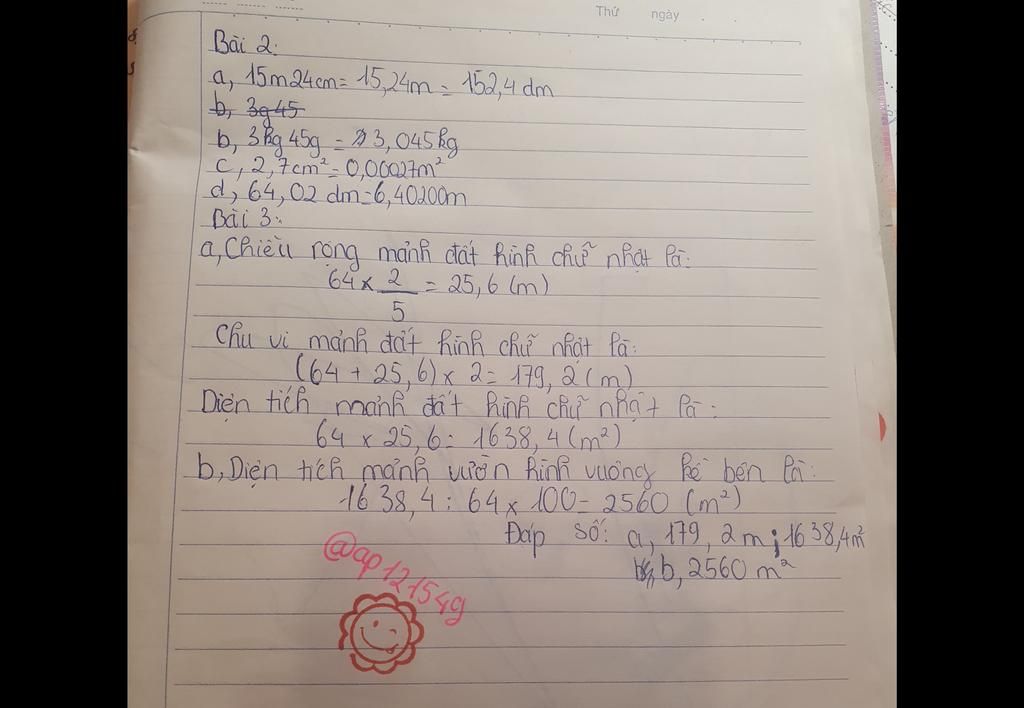 Thứ ngày
Bài 2:
a, 15m24cm = 15,24m = 152,4 dm
b, 3g45
b, 3kg 45g = 3,045kg
c, 2,7cm² = 0,00027m²
d, 64,02 dm = 6,40200m
Bài 3:
a, Chiều rộng mảnh đất hình chữ nhật là:
64 x 2/5 = 25,6 (m)
Chu vi mảnh đất hình chữ nhật là:
(64 + 25,6) x 2 = 179,2 (m)
Diện tích mảnh đất hình chữ nhật là:
64 x 25,6 = 1638,4 (m²)
b, Diện tích mảnh vườn hình vuông kề bên là:
1638,4 : 64 x 100 = 2560 (m²)
Đáp số: a, 179,2m; 1638,4m²
b, 2560 m²
@ap12154g